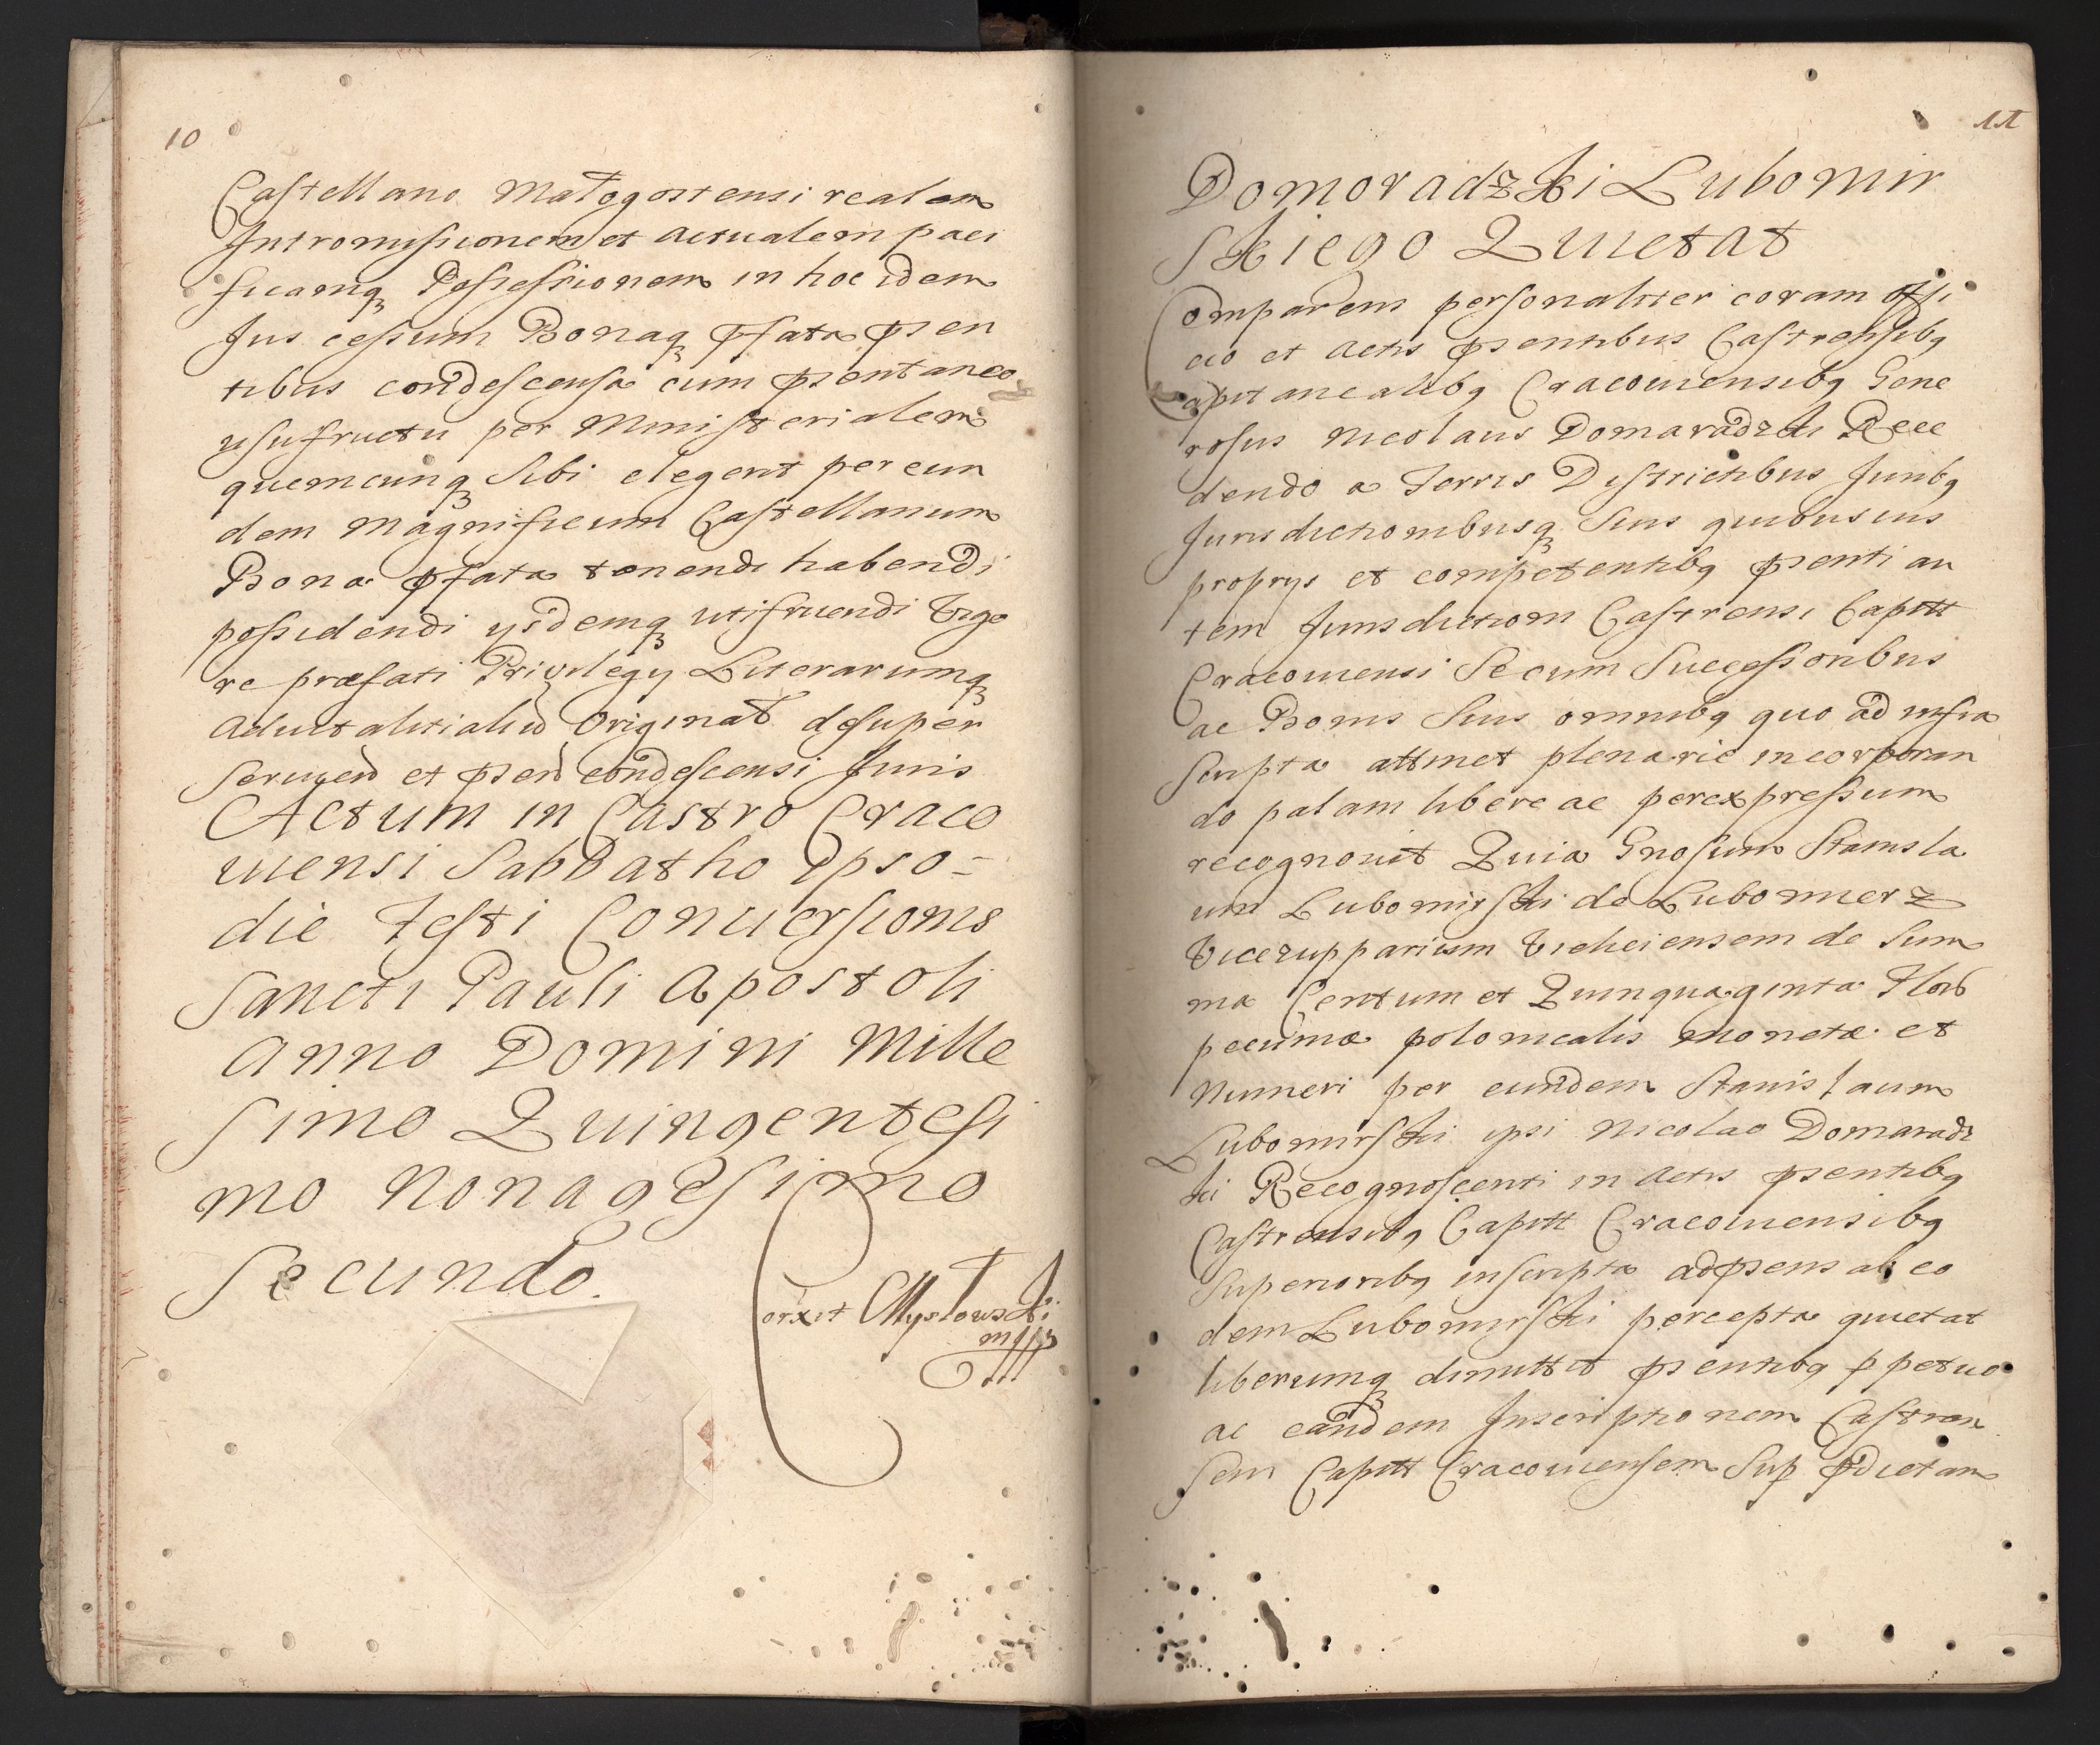 10
Castellano Małogostensi realem
Intromissionem et actualem paci
ficamq3 Possessionem in hoc idem
Jus cessum Bonaq3 pfata psen
tibus condescensa cum psentaneo
usufructu per Ministerialem
quemcunq3 Sibi elegerit per eun
dem Magnificum Castellanum
Bona pfata tenendi habendi
possidendi ysdemq3 utifruendi Vigo
re præfati Privilegy Literarumq3
Advitalitialiu Original desuper
Servien et psen condescensi Juris
Actum in Castro Craco
viensi Sabbatho Ipso =
die Festi Conversionis
Sancti Pauli Apostoli
Anno Domini Mille
simo Quingentesi
mo Nonagesimo
Secundo.
Corxit Mysłowski
mpp
11
Domoradzki Lubomir
skiego Quietat
Comparens personaliter coram offi
cio et Actis psentibus Castrensibq
Capitanealibq Cracoviensibq Gene
rosus Nicolaus Domaradzki Rece
dendo a Terris Districtibus Juribq
Jurisdictionibusq3 Suis quibusuis
proprys et competentibq psenti au
tem Jurisdictioni Castrensi Capitt
Cracoviensi Se cum Successoribus
ac Bonis Suis omnibq quo ad infra
scripta attinet plenarie incorporan
do palam libere ac per expressum
recognovit Quia Gnosum Stanisla
um Lubomirski de Lubomierz
Vicezupparium Vieliciensem de Sum
ma Centum et Quinquaginta Flor
pecuniæ polonicalis monetæ et
Numeri per eundem Stanislaum
Lubomirski ipsi Nicolao Domaradz
ki Recognoscenti in Actis psentibq
Castrensibq Capitt Cracoviensibq
Superioribq inscripta ad psens ab eo
dem Lubomirski percepta quietat
liberumq3 dimittit psentibq ppetuo
ac eandem Inscriptionem Castren
sem Capitt Cracoviensem Sup pdictam